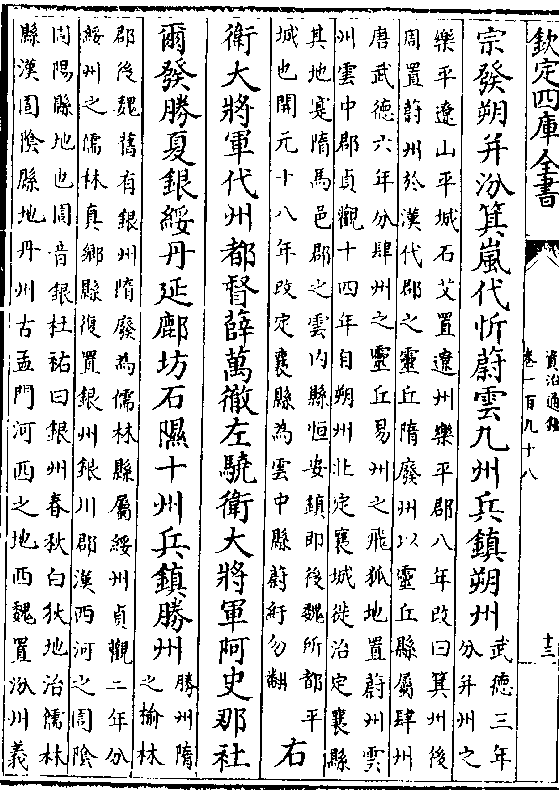 欽定四庫全書
資治通鑑
卷一百九十八
十三
宗發朔并汾箕嵐代忻蔚雲九州兵鎮朔州
武德三年
分并州之
樂平遼山平城石艾置遼州樂平郡八年改曰箕州後
周置蔚州於漢代郡之靈丘隋廢州以靈丘縣屬肆州
唐武德六年分肆州之靈丘易州之飛狐地置蔚州雲
州雲中郡貞觀十四年自朔州北定襄城徙治定襄縣
其地寔隋馬邑郡之雲内縣恒安鎮即後魏所都平
城也開元十八年改定襄縣為雲中縣蔚紆勿翻
右
衛大將軍代州都督薛萬徹左驍衛大將軍阿史那社
爾發勝夏銀綏丹延鄜坊石隰十州兵鎮勝州
勝州隋
之榆林
郡後魏舊有銀州隋廢為儒林縣屬綏州貞觀二年分
綏州之儒林真鄉縣復置銀州銀川郡漢西河之圁陰
圁陽縣地也圁音銀杜祐曰銀州春秋白狄地治儒林
縣漢圁陰縣地丹州古孟門河西之地西魏置汾州義